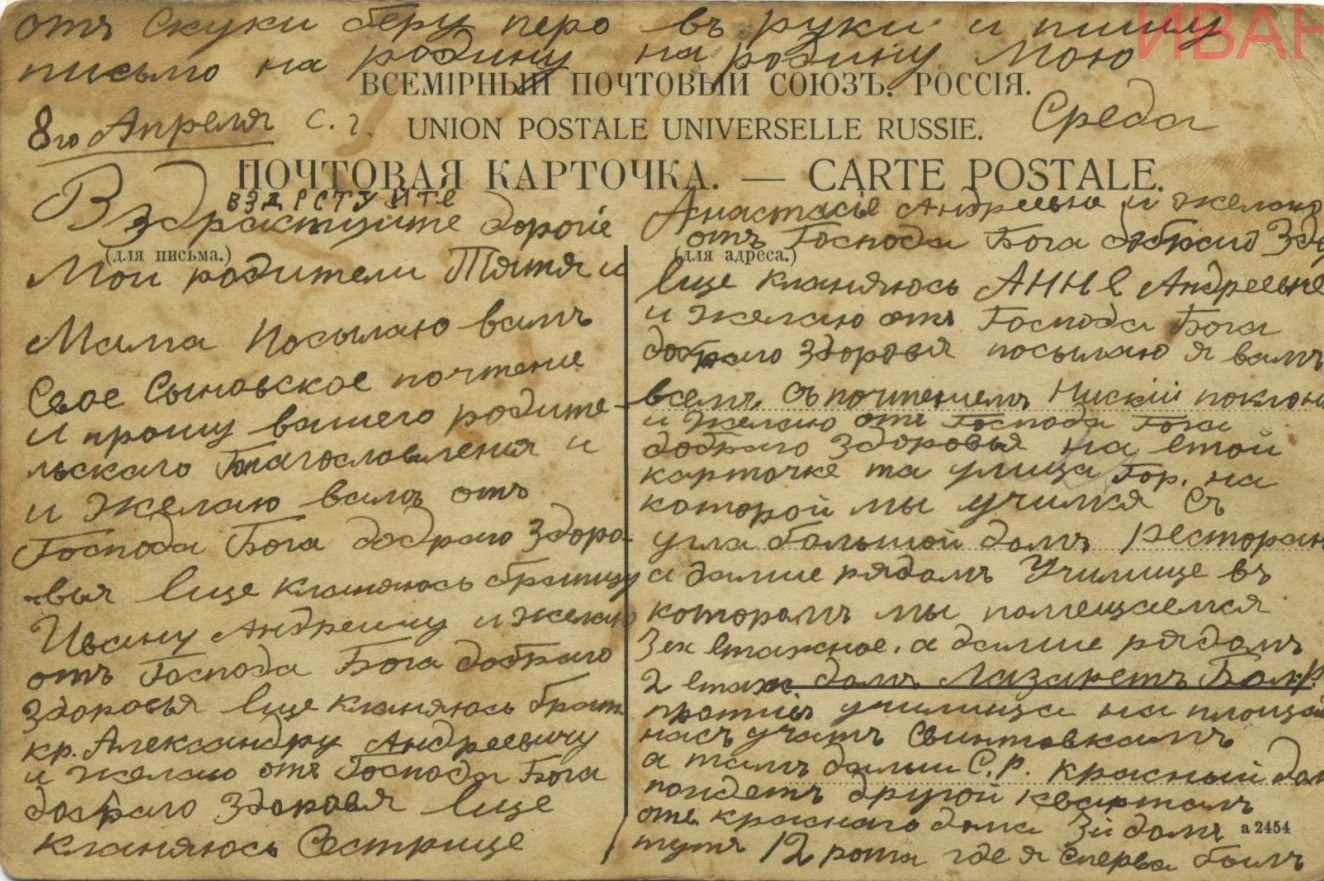 отъ Скуки беру перо въ руки и пишу
письмо на родину на родину мою
ИВАН
ВСЕМІРНЫЙ ПОЧТОВЫЙ СОЮЗЪ. РОССІЯ.
8го Апреля с. г.
UNION POSTALE UNIVERSELLE RUSSIE.
Среда
ПОЧТОВАЯ КАРТОЧКА. — CARTE POSTALE.
ВЗДРСТУЙТЕ
Вздраст дорогіе
(для письма.)
Мои родители Тятя и
Мама Посылаю вамъ
Свое Сыновское почтение
и прошу вашего родите-
льскаго Благословления и
и желаю вамъ отъ
Господа Бога добраго здоро-
вья Еще кланяюсь братицу
Ивану Андреичу и желаю
отъ Господа Бога добраго
здоровья Еще кланяюсь брат
кр. Александру Андреевичу
и желаю отъ Господа Бога
добраго здоровья Еще
кланяюсь Сестрице
Анастасіе Андреевне и желаю
отъ Господа Бога добраго Здо
(для адреса.)
Еще кланяюсь АННЕ Андреевне
и желаю отъ Господа Бога
добраго здоровья посылаю я вамъ
всемъ съ почтениемъ Ниский поклонъ
и желаю отъ Господа Бога
добраго здоровья на етой
карточке та улица Гор. на
которой мы учимся Съ
угла большой домъ Ресторанъ
а далше рядомъ Училище въ
которомъ мы помещаемся
3ех етажное. а далше рядомъ
2 етаж домъ Лазаретъ
против училища на площад
насъ учатъ Свинтовкамъ
а тамъ далши С.Р. красный дом
пойдетъ другой кварталъ
отъ краснаго дома 3й домъ
тутъ 12 рота где я сперва былъ
а 2454